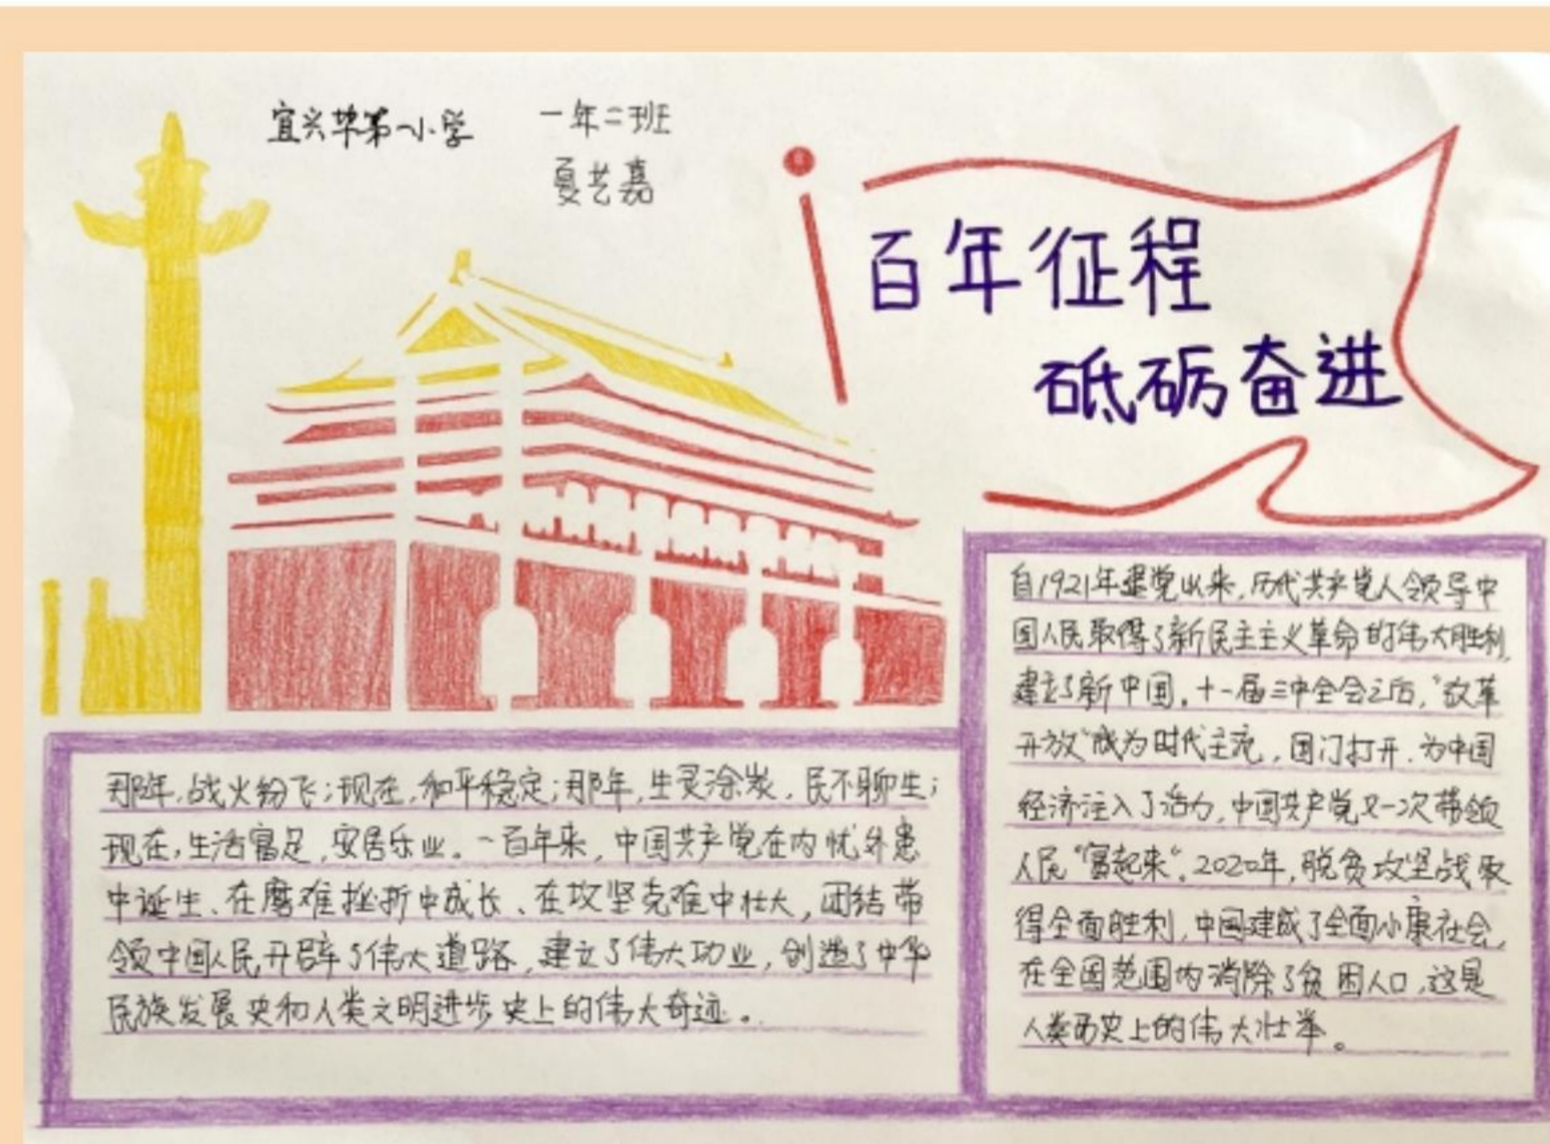 宜兴埠第一小学
一年二班
夏艺嘉
百年征程
砥砺奋进
那年,战火纷飞;现在,和平稳定;那年,生灵涂炭,民不聊生;
现在,生活富足,安居乐业。一百年来,中国共产党在内忧外患
中诞生、在磨难挫折中成长、在攻坚克难中壮大,团结带
领中国人民开辟了伟大道路,建立了伟大功业,创造了中华
民族发展史和人类文明进步史上的伟大奇迹。
自1921年建党以来,历代共产党人领导中
国人民取得了新民主主义革命的伟大胜利,
建立了新中国。十一届三中全会之后,“改革
开放”成为时代主流,国门打开,为中国
经济注入了活力,中国共产党又一次带领
人民“富起来”。2020年,脱贫攻坚战取
得全面胜利,中国建成了全面小康社会,
在全国范围内消除了贫困人口,这是
人类历史上的伟大壮举。